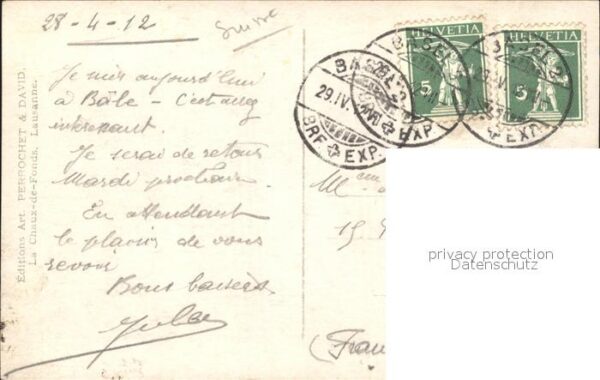 28-4-12
Suisse
Je suis aujourd'hui
à Bâle - C'est assez
intéressant.
Je serai de retour
Mardi prochain.
En attendant
le plaisir de vous
revoir
Bons baisers
Éditions Art. PERROCHET & DAVID,
La Chaux-de-Fonds, Lausanne.
HELVETIA
5
HELVETIA
5
BASEL
29.IV.
BRF EXP.
BASEL 2
EXP.
15
(Fran
privacy protection
Datenschutz